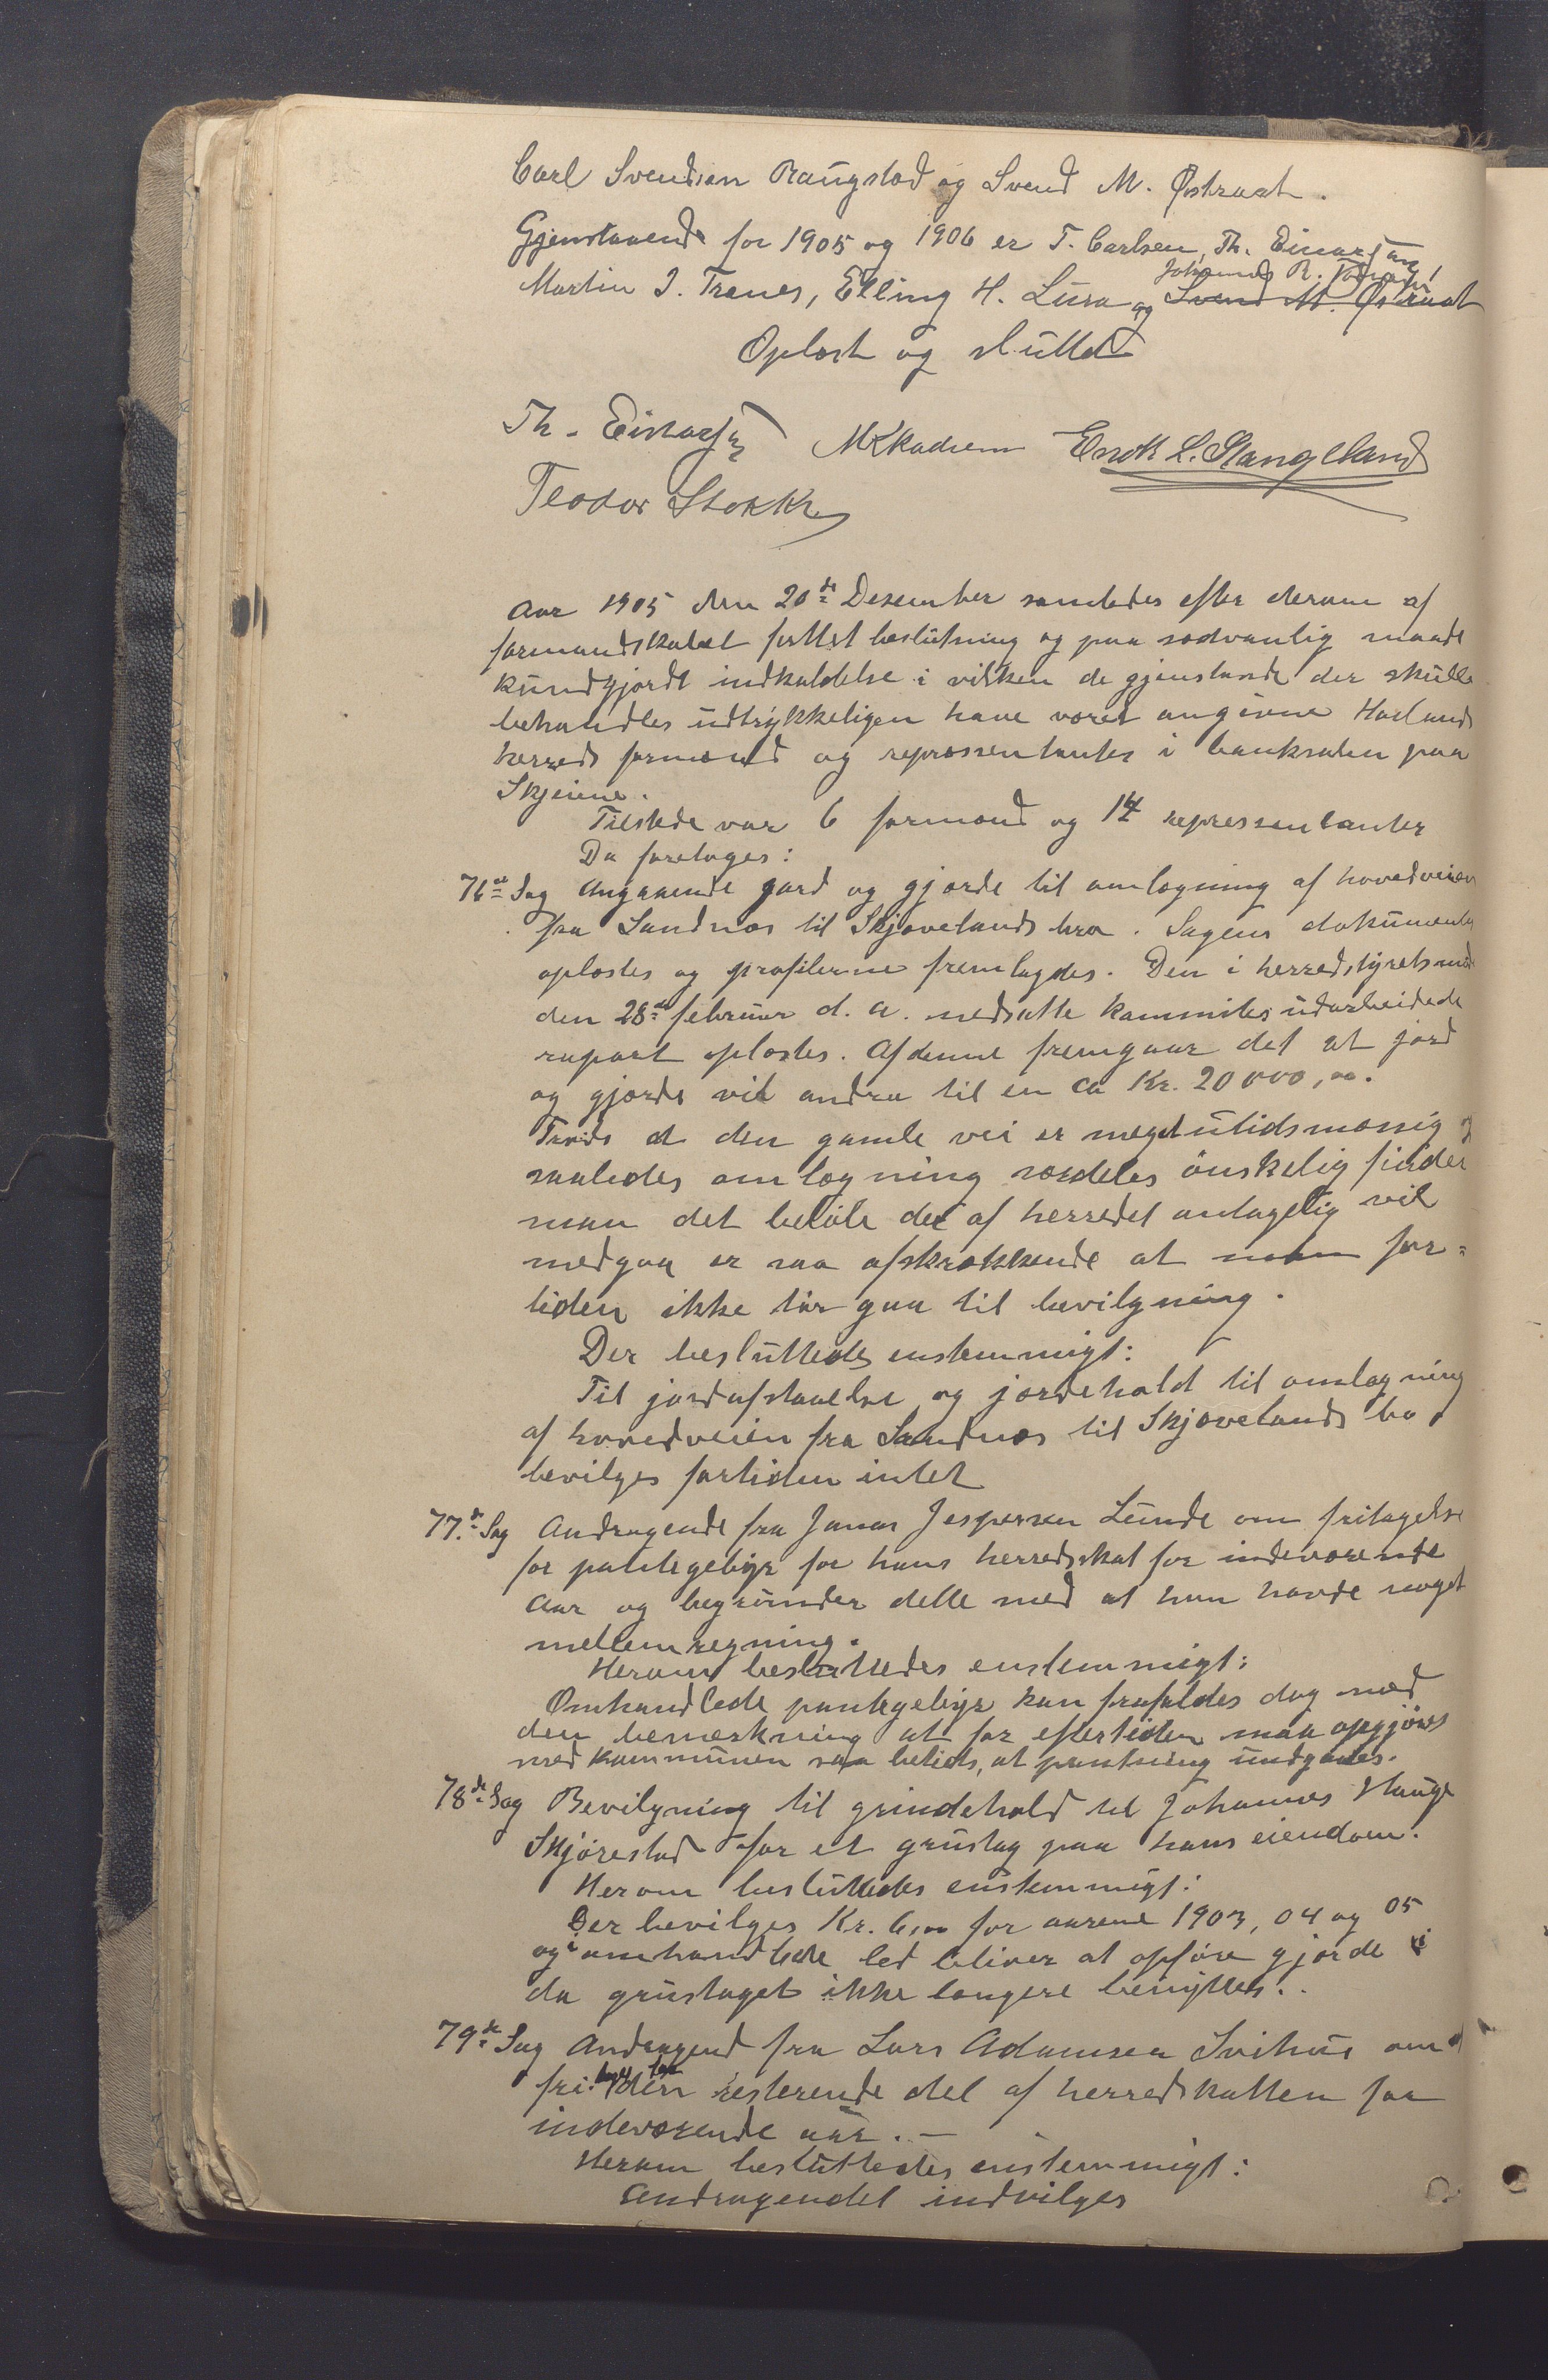 Carl Svendsen Raugstad og Svend M. Østraat.
Gjenstaaende for 1905 og 1906 er T. Carlsen, Th. Einarsen,
Martin I. Tranes, Elling H. Lura og Johannes R. Svend M. Østraat
Oplæst og sluttet
Th. Einarsen Enok L. Stangeland
Teodor Stokke
Aar 1905 den 20de Desember samledes efter derom af
formandskabet fattet beslutning og paa sædvanlig maade
kundgjordt indkaldelse i vilken de gjenstande der skulle
behandles udtrykkeligen have været angivne Høilands
herreds formænd og repræssentanter i banksalen paa
Skjeiene.
Tilstede var 6 formænd og 14 repressentanter
Da foretoges:
76de Sag Angaaende jord og gjærde til omlægning af hovedveien
fra Sandnæs til Skjævelands bro. Sagens dokumenter
oplæstes og profilerne fremlagdes. Den i herredstyrets møde
den 28de februar d. a. nedsatte kommites udarbeidede
raport oplæstes. Af denne fremgaar det at jord
og gjærde vil andra til en ca Kr. 20000,00.
Trods at den gamle vei er meget utidsmæssig og
saaledes omlægning særdeles ønskelig finder
man det beløb der af herredet antagelig vil
medgaa er saa afskrækkende at man for-
tiden ikke tør gaa til bevilgning.
Der besluttedes enstemmigt:
Til jordafstaaelse og jærdehold til omlægning
af hovedveien fra Sandnæs til Skjævelands bro
bevilges fortiden intet
77de Sag Andragende fra Jonas Jespersen Lunde om fritagelse
for pantegebyr for hans herredsskat for indeværende
aar og begrunder dette med at han havde noget
mellemregning.
Herom besluttedes enstemmigt:
Omhandlede pantegebyr kan frafaldes dog med
den bemærkning at for eftertiden maa opgjøres
med kommunen saa betids, at pantning undgaaes.
78de Sag Bevilgning til grindehold til Johannes Hauge
Skjørestad for et grustag paa hans eiendom.
Herom besluttedes enstemmigt:
Der bevilges Kr. 6,00 for aarene 1903, 04 og 05
og omhandlede led bliver at opføre gjærde i
da grustaget ikke længere benyttes.
79de Sag Andragend fra Lars Adamsen Svihus om
fri den resterende del af herredskatten for
indeværende aar.–
Herom besluttedes enstemmigt:
Andragendet indvilges